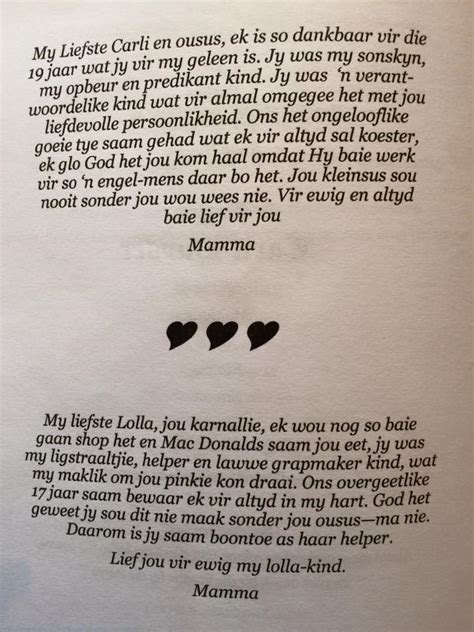 My Liefste Carli en ousus, ek is so dankbaar vir die
19 jaar wat jy vir my geleen is. Jy was my sonskyn,
my opbeur en predikant kind. Jy was ‘n verant-
woordelike kind wat vir almal omgegee het met jou
liefdevolle persoonlikheid. Ons het ongelooflike
goeie tye saam gehad wat ek vir altyd sal koester,
ek glo God het jou kom haal omdat Hy baie werk
vir so ‘n engel-mens daar bo het. Jou kleinsus sou
nooit sonder jou wou wees nie. Vir ewig en altyd
baie lief vir jou
Mamma
My liefste Lolla, jou karnallie, ek wou nog so baie
gaan shop het en Mac Donalds saam jou eet, jy was
my ligstraaltjie, helper en lawwe grapmaker kind, wat
my maklik om jou pinkie kon draai. Ons overgeetlike
17 jaar saam bewaar ek vir altyd in my hart. God het
geweet jy sou dit nie maak sonder jou ousus—ma nie.
Daarom is jy saam boontoe as haar helper.
Lief jou vir ewig my lolla-kind.
Mamma